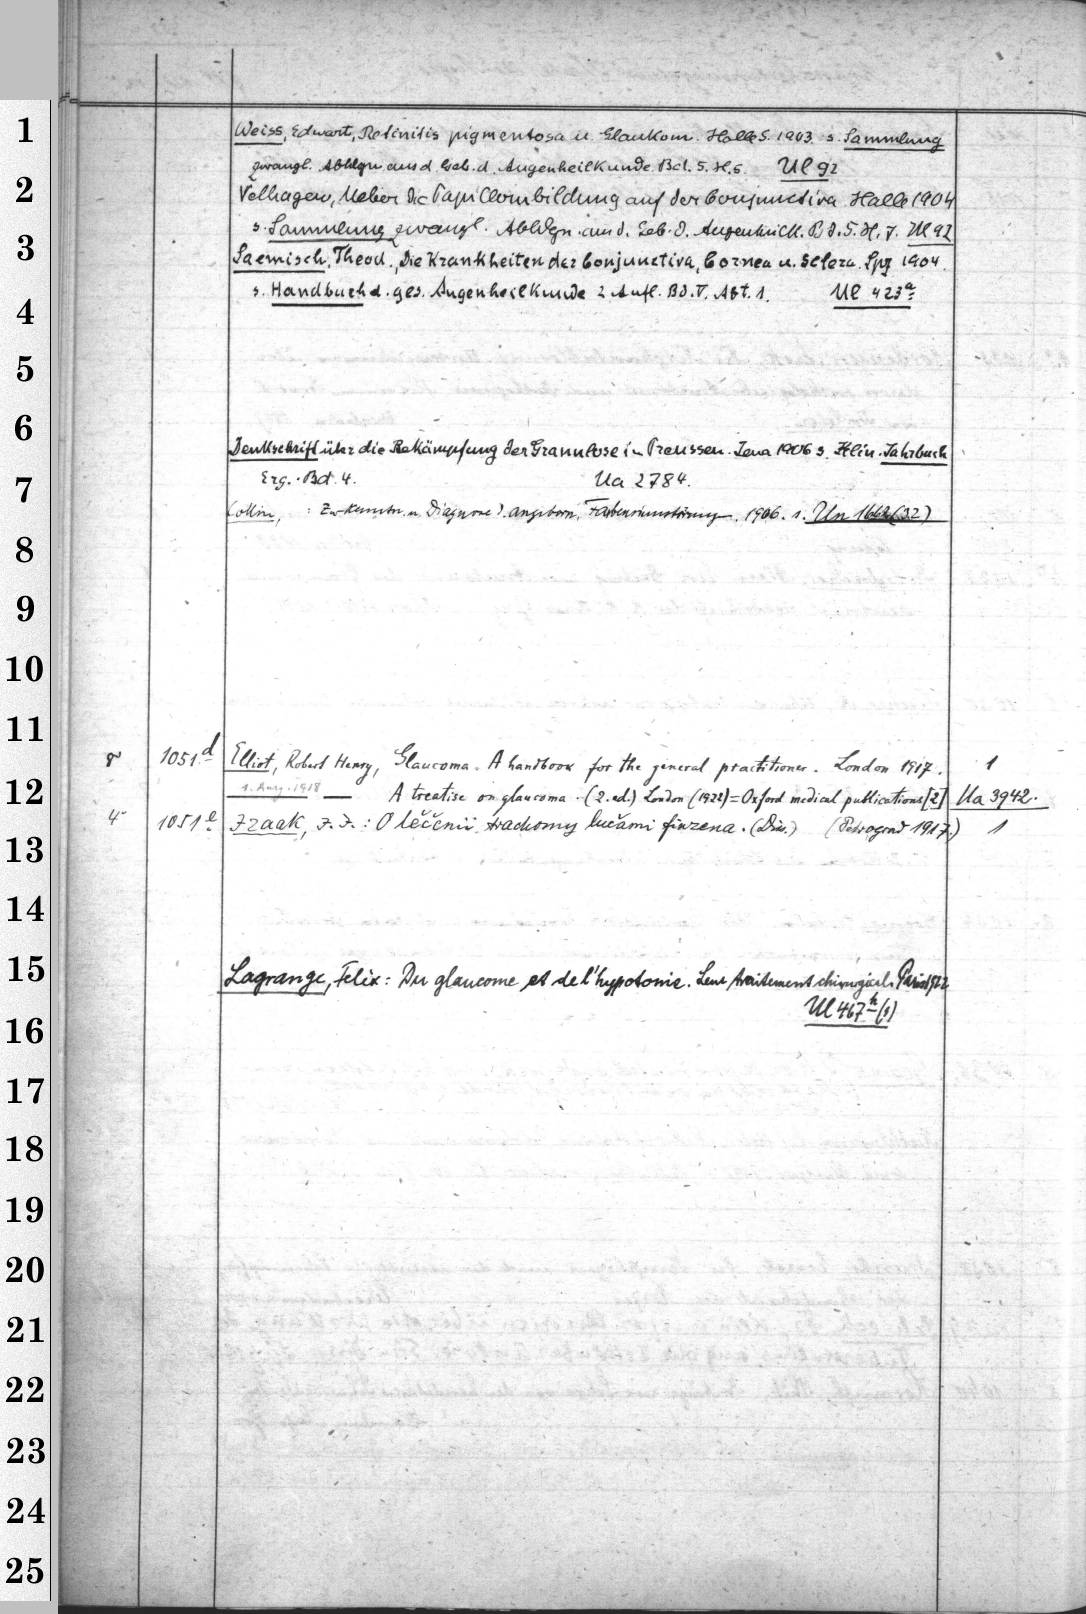 1
Weiss, Edwart, Retinitis pigmentosa u. Glaukom. Halle S. 1903. s. Sammlung
zwangl. Abhdlgn aus d. Geb. d. Augenheilkunde Bd. 5. H. 5. Ul 92
2
Velhagen, Ueber die Papillombildung auf der Conjunctiva Halle 1904
s. Sammlung zwangl. Abhdlgn. aus d. Geb. d. Augenheilk. Bd. 5. H. 7. Ul 92
3
Saemisch, Theod., Die Krankheiten der Conjunctiva, Cornea u. Sclera. Lpz 1904.
s. Handbuch d. ges. Augenheilkunde 2 Aufl. Bd. V. Abt. 1. Ul 423a
4
5
6
Denkschrift über die Bekämpfung der Granulose in Preussen. Jena 1906 s. Klin. Jahrbuch
Erg.-Bd. 4. Ua 2784.
7
Collin, : Zur Kenntn. u. Diagnose d. angebornen Farbensinnstörung. 1906. s. Un 1662 (32)
8
9
10
11
8° 1051.d Elliot, Robert Henry, Glaucoma. A handbook for the general practitioner. London 1917. 1
1. Aug. 1918 — A treatise on glaucoma. (2. ed.) London (1922) = Oxford medical publications [2] Ua 3942.
12
4° 1051e. Izaak, I. I.: O lěčenii trachomy lučami finzena. (Diss.) (Petrograd 1917.) 1
13
14
15
Lagrange, Felix: Du glaucome et de l'hypotonie. Leur traitement chirurgical. Paris 1922
Ul 467h (8)
16
17
18
19
20
21
22
23
24
25